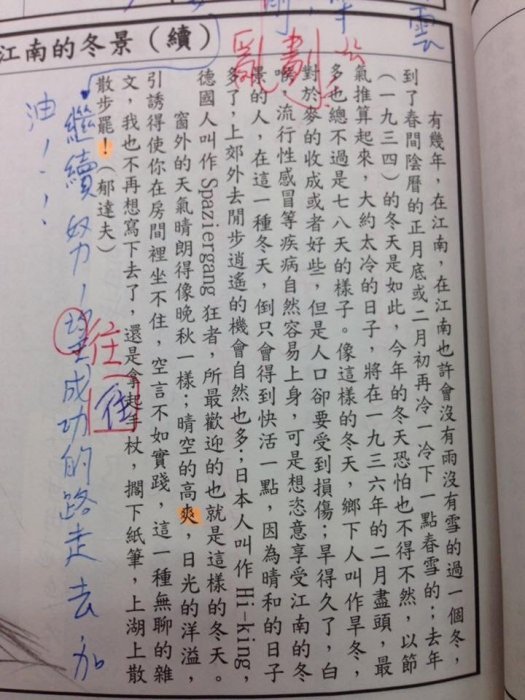 雲
亂劃
江南的冬景（續）
有幾年，在江南，在江南也許會沒有雨沒有雪的過一個冬，
到了春間陰曆的正月底或二月初再冷一冷下一點春雪的；去年
（一九三四）的冬天是如此，今年的冬天恐怕也不得不然，以節
氣推算起來，大約太冷的日子，將在一九三六年的二月盡頭，最
多也總不過是七八天的樣子。像這樣的冬天，鄉下人叫作旱冬，
對於麥的收成或者好些，但是人口卻要受到損傷；旱得久了，白
喉，流行性感冒等疾病自然容易上身，可是想恣意享受江南的冬
景的人，在這一種冬天，倒只會得到快活一點，因為晴和的日子
多了，上郊外去閒步逍遙的機會自然也多；日本人叫作 Hi-king，
德國人叫作 Spaziergang 狂者，所最歡迎的也就是這樣的冬天。
窗外的天氣晴朗得像晚秋一樣；晴空的高爽，日光的洋溢，
引誘得使你在房間裡坐不住，空言不如實踐，這一種無聊的雜
文，我也不再想寫下去了，還是拿起手杖，擱下紙筆，上湖上散
散步罷！（郁達夫）
往
繼續努力，成功的路走去加
油！！